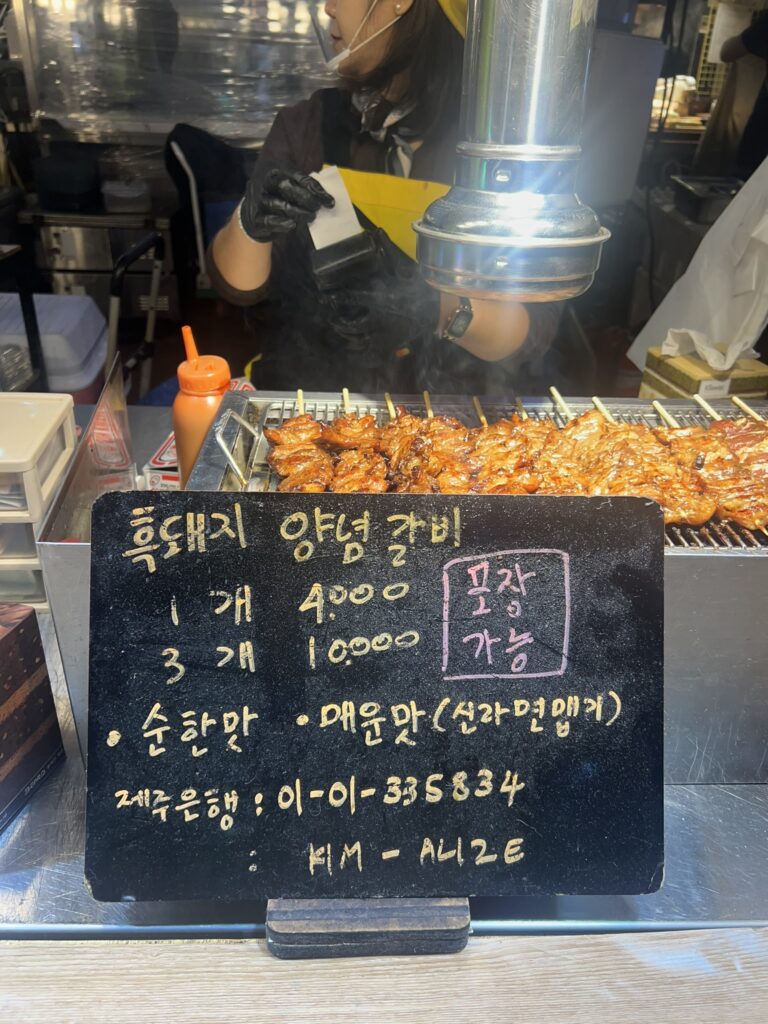 흑돼지 양념갈비
1 개 4.000
3 개 10.000
포장
가능
• 순한맛 • 매운맛(신라면맵기)
제주은행 : 01-01-335834
: KIM - ALIZE